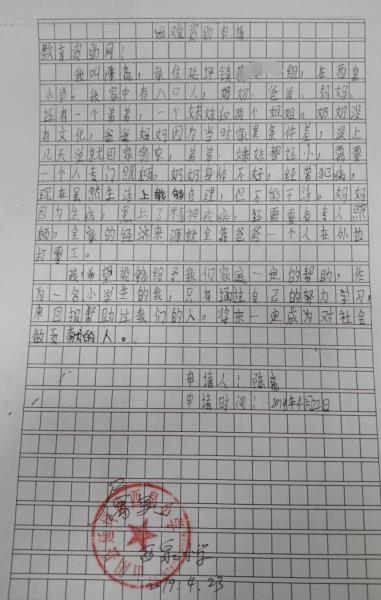 困难资助申请
教育资助网:
我叫陈亮,家住延坪镇 组,在西泉
小学。我家中有八口人,奶奶、爸爸、妈妈、
还有一个弟弟,一个妹妹和两个姐姐。奶奶没
有文化,爸爸妈妈因为当时家里条件差,没上
几天学就回家务农,弟弟、妹妹都还小,需要
一个人专门照顾。奶奶身体不好,经常犯病,
现在虽然生活上能够自理,但不能干活。妈妈
因为生病,患上了精神疾病,轻需要有专人照
顾。全家的经济来源就全靠爸爸一个人在外边
打零工。
我希望能够给予我们家庭一定的帮助,作
为一名小学生的我,只有通过自己的努力学习,
来回报帮助过我们的人。将来一定成为对社会
做贡献的人。
申请人:陈亮
申请时间:2019年4月22日
属实
西泉小学
2019.4.23